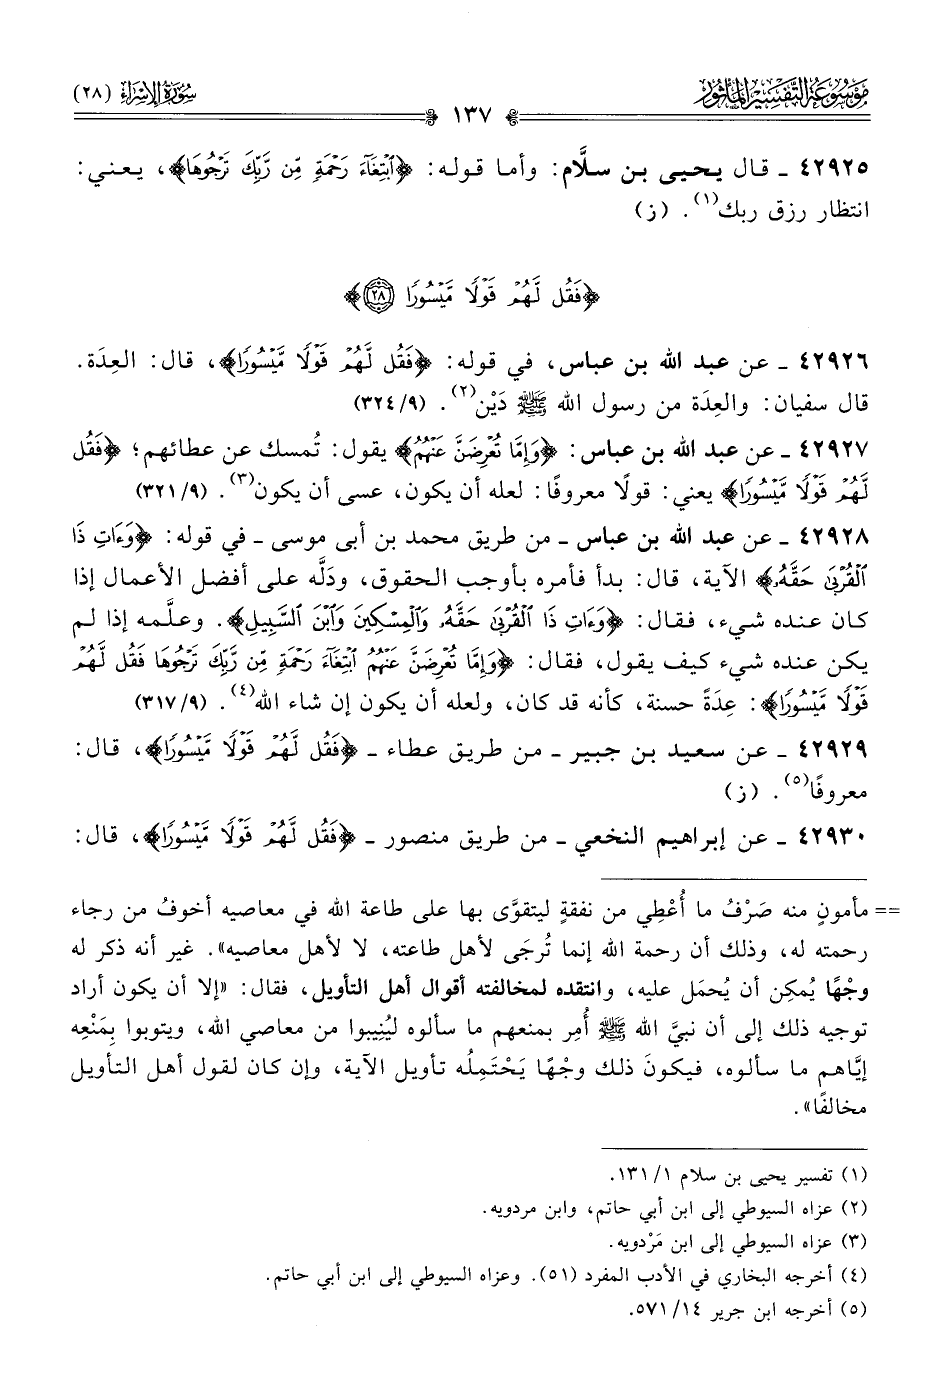 مَوْسُوعَة التَّفْسِير المَأْثُور
سُورَةُ الإِسْرَاء (٢٨)
١٣٧
٤٢٩٢٥ ـ قال يحيى بن سلَّام: وأما قوله: ﴿ٱبْتِغَآءَ رَحْمَةٍ مِّن رَّبِّكَ تَرْجُوهَا﴾، يعني:
انتظار رزق ربك(١). (ز)
﴿فَقُل لَّهُمْ قَوْلًا مَّيْسُورًا ٢٨﴾
٤٢٩٢٦ ـ عن عبد الله بن عباس، في قوله: ﴿فَقُل لَّهُمْ قَوْلًا مَّيْسُورًا﴾، قال: العِدَة.
قال سفيان: والعِدَة من رسول الله ﷺ دَيْن(٢). (٩/ ٣٢٤)
٤٢٩٢٧ ـ عن عبد الله بن عباس: ﴿وَإِمَّا تُعْرِضَنَّ عَنْهُمُ﴾ يقول: تُمسك عن عطائهم؛ ﴿فَقُل
لَّهُمْ قَوْلًا مَّيْسُورًا﴾ يعني: قولًا معروفًا: لعله أن يكون، عسى أن يكون(٣). (٩/ ٣٢١)
٤٢٩٢٨ ـ عن عبد الله بن عباس ـ من طريق محمد بن أبي موسى ـ في قوله: ﴿وَءَاتِ ذَا
ٱلْقُرْبَىٰ حَقَّهُۥ﴾ الآية، قال: بدأ فأمره بأوجب الحقوق، ودَلَّه على أفضل الأعمال إذا
كان عنده شيء، فقال: ﴿وَءَاتِ ذَا ٱلْقُرْبَىٰ حَقَّهُۥ وَٱلْمِسْكِينَ وَٱبْنَ ٱلسَّبِيلِ﴾. وعلَّمه إذا لم
يكن عنده شيء كيف يقول، فقال: ﴿وَإِمَّا تُعْرِضَنَّ عَنْهُمُ ٱبْتِغَآءَ رَحْمَةٍ مِّن رَّبِّكَ تَرْجُوهَا فَقُل لَّهُمْ
قَوْلًا مَّيْسُورًا﴾: عِدَةً حسنة، كأنه قد كان، ولعله أن يكون إن شاء الله(٤). (٩/ ٣١٧)
٤٢٩٢٩ ـ عن سعيد بن جبير ـ من طريق عطاء ـ ﴿فَقُل لَّهُمْ قَوْلًا مَّيْسُورًا﴾، قال:
معروفًا(٥). (ز)
٤٢٩٣٠ ـ عن إبراهيم النخعي ـ من طريق منصور ـ ﴿فَقُل لَّهُمْ قَوْلًا مَّيْسُورًا﴾، قال:
== مأمونٍ منه صَرْفُ ما أُعْطِي من نفقةٍ ليتقوَّى بها على طاعة الله في معاصيه أخوفُ من رجاء
رحمته له، وذلك أن رحمة الله إنما تُرجَى لأهل طاعته، لا لأهل معاصيه». غير أنه ذكر له
وجْهًا يُمكِن أن يُحمَل عليه، وانتقده لمخالفته أقوال أهل التأويل، فقال: «إلا أن يكون أراد
توجيه ذلك إلى أن نبيَّ الله ﷺ أُمِر بمنعهم ما سألوه ليُنِيبوا من معاصي الله، ويتوبوا بِمَنْعِه
إيَّاهم ما سألوه، فيكونَ ذلك وجْهًا يَحْتَمِلُه تأويل الآية، وإن كان لقول أهل التأويل
مخالفًا».
(١) تفسير يحيى بن سلام ١/ ١٣١.
(٢) عزاه السيوطي إلى ابن أبي حاتم، وابن مردويه.
(٣) عزاه السيوطي إلى ابن مَرْدويه.
(٤) أخرجه البخاري في الأدب المفرد (٥١). وعزاه السيوطي إلى ابن أبي حاتم.
(٥) أخرجه ابن جرير ١٤/ ٥٧١.